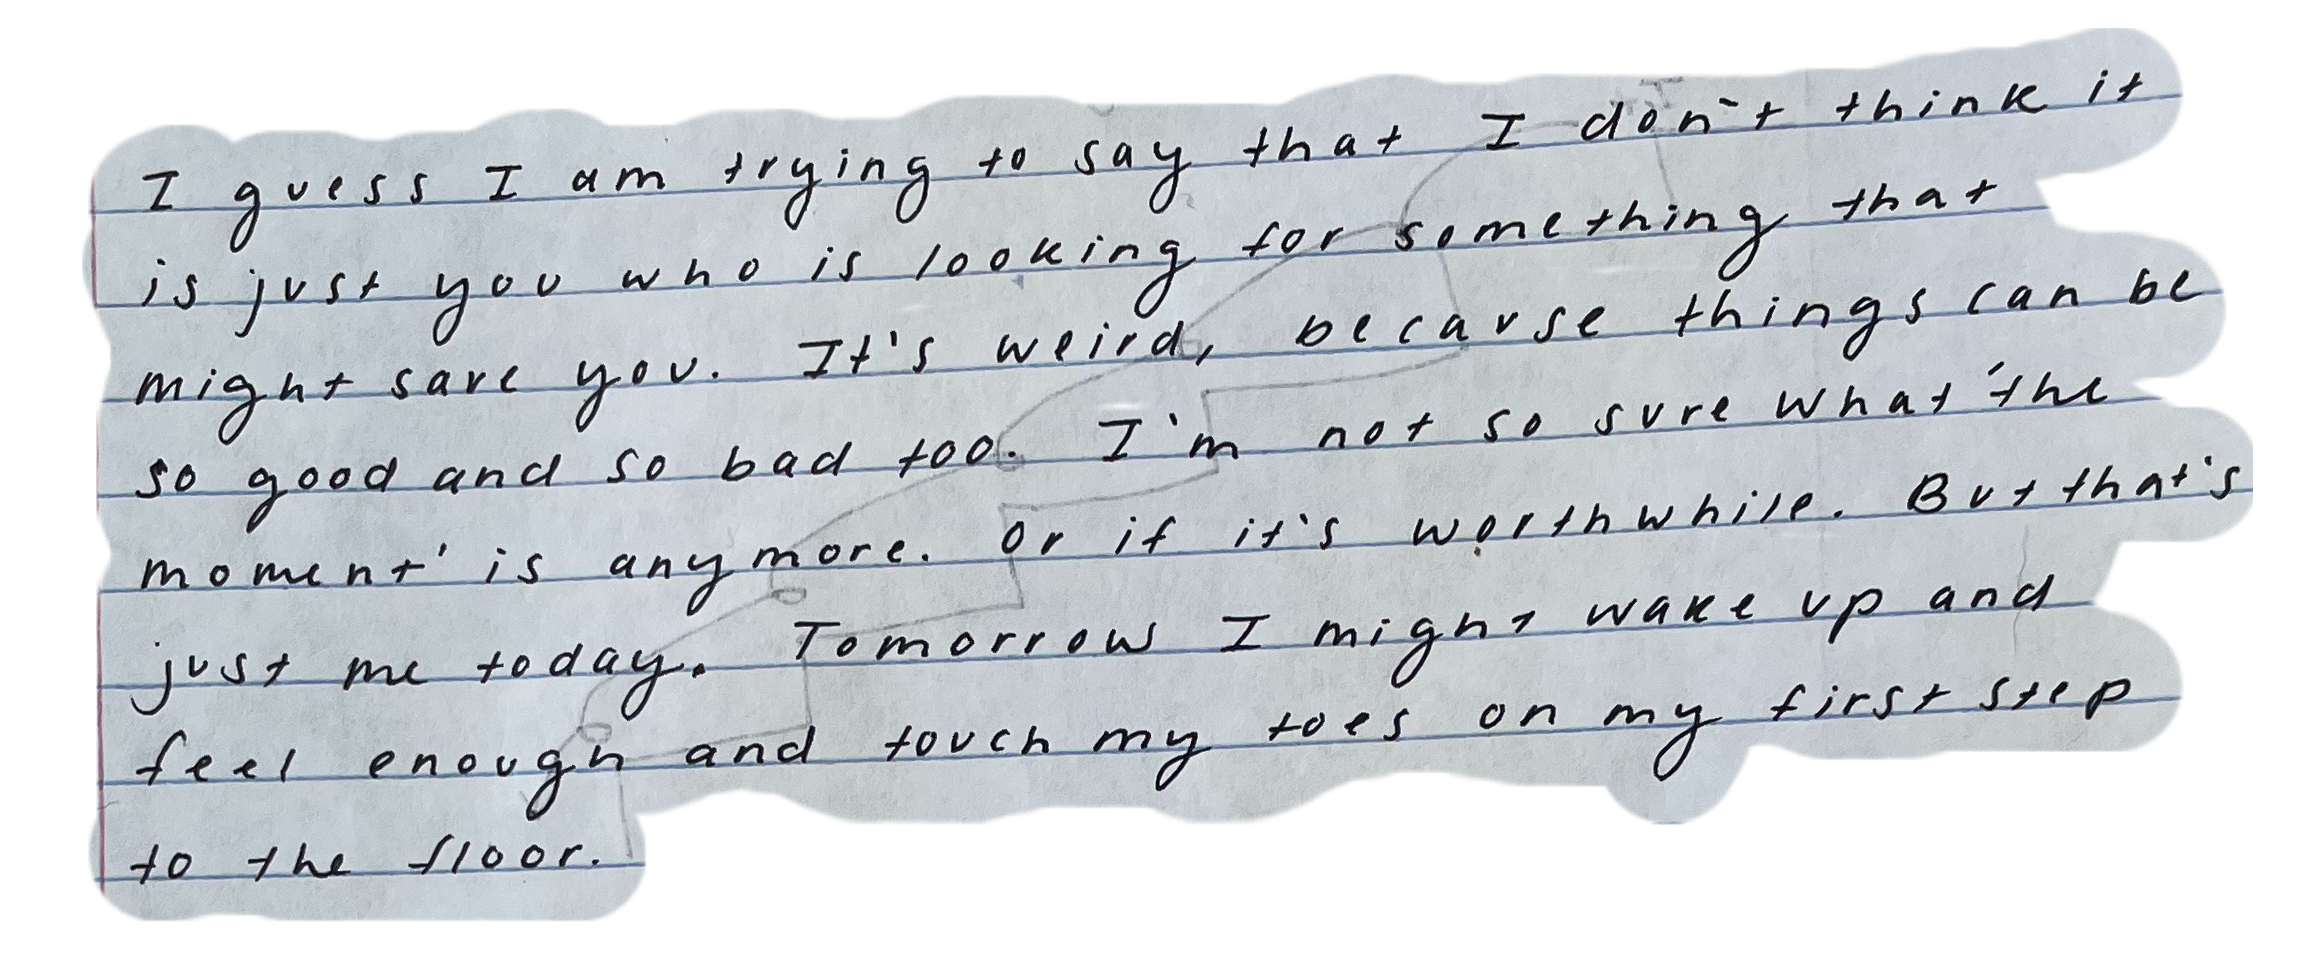 I guess I am trying to say that I don't think it
is just you who is looking for something that
might save you. It's weird, because things can be
so good and so bad too. I'm not so sure what 'the
moment' is anymore. Or if it's worthwhile. But that's
just me today. Tomorrow I might wake up and
feel enough and touch my toes on my first step
to the floor.